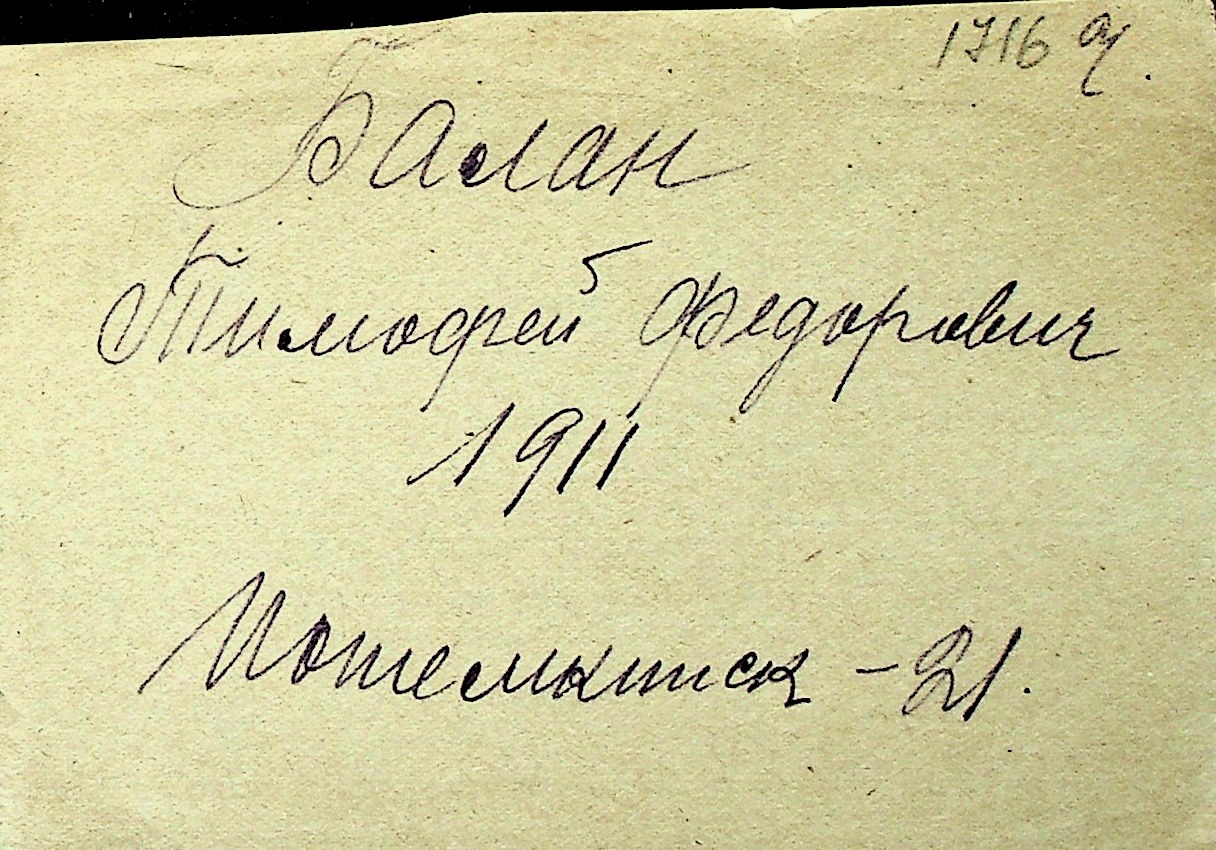 1716 д.
Балан
Тимофей Федорович
1911
Потемкинск - 21.